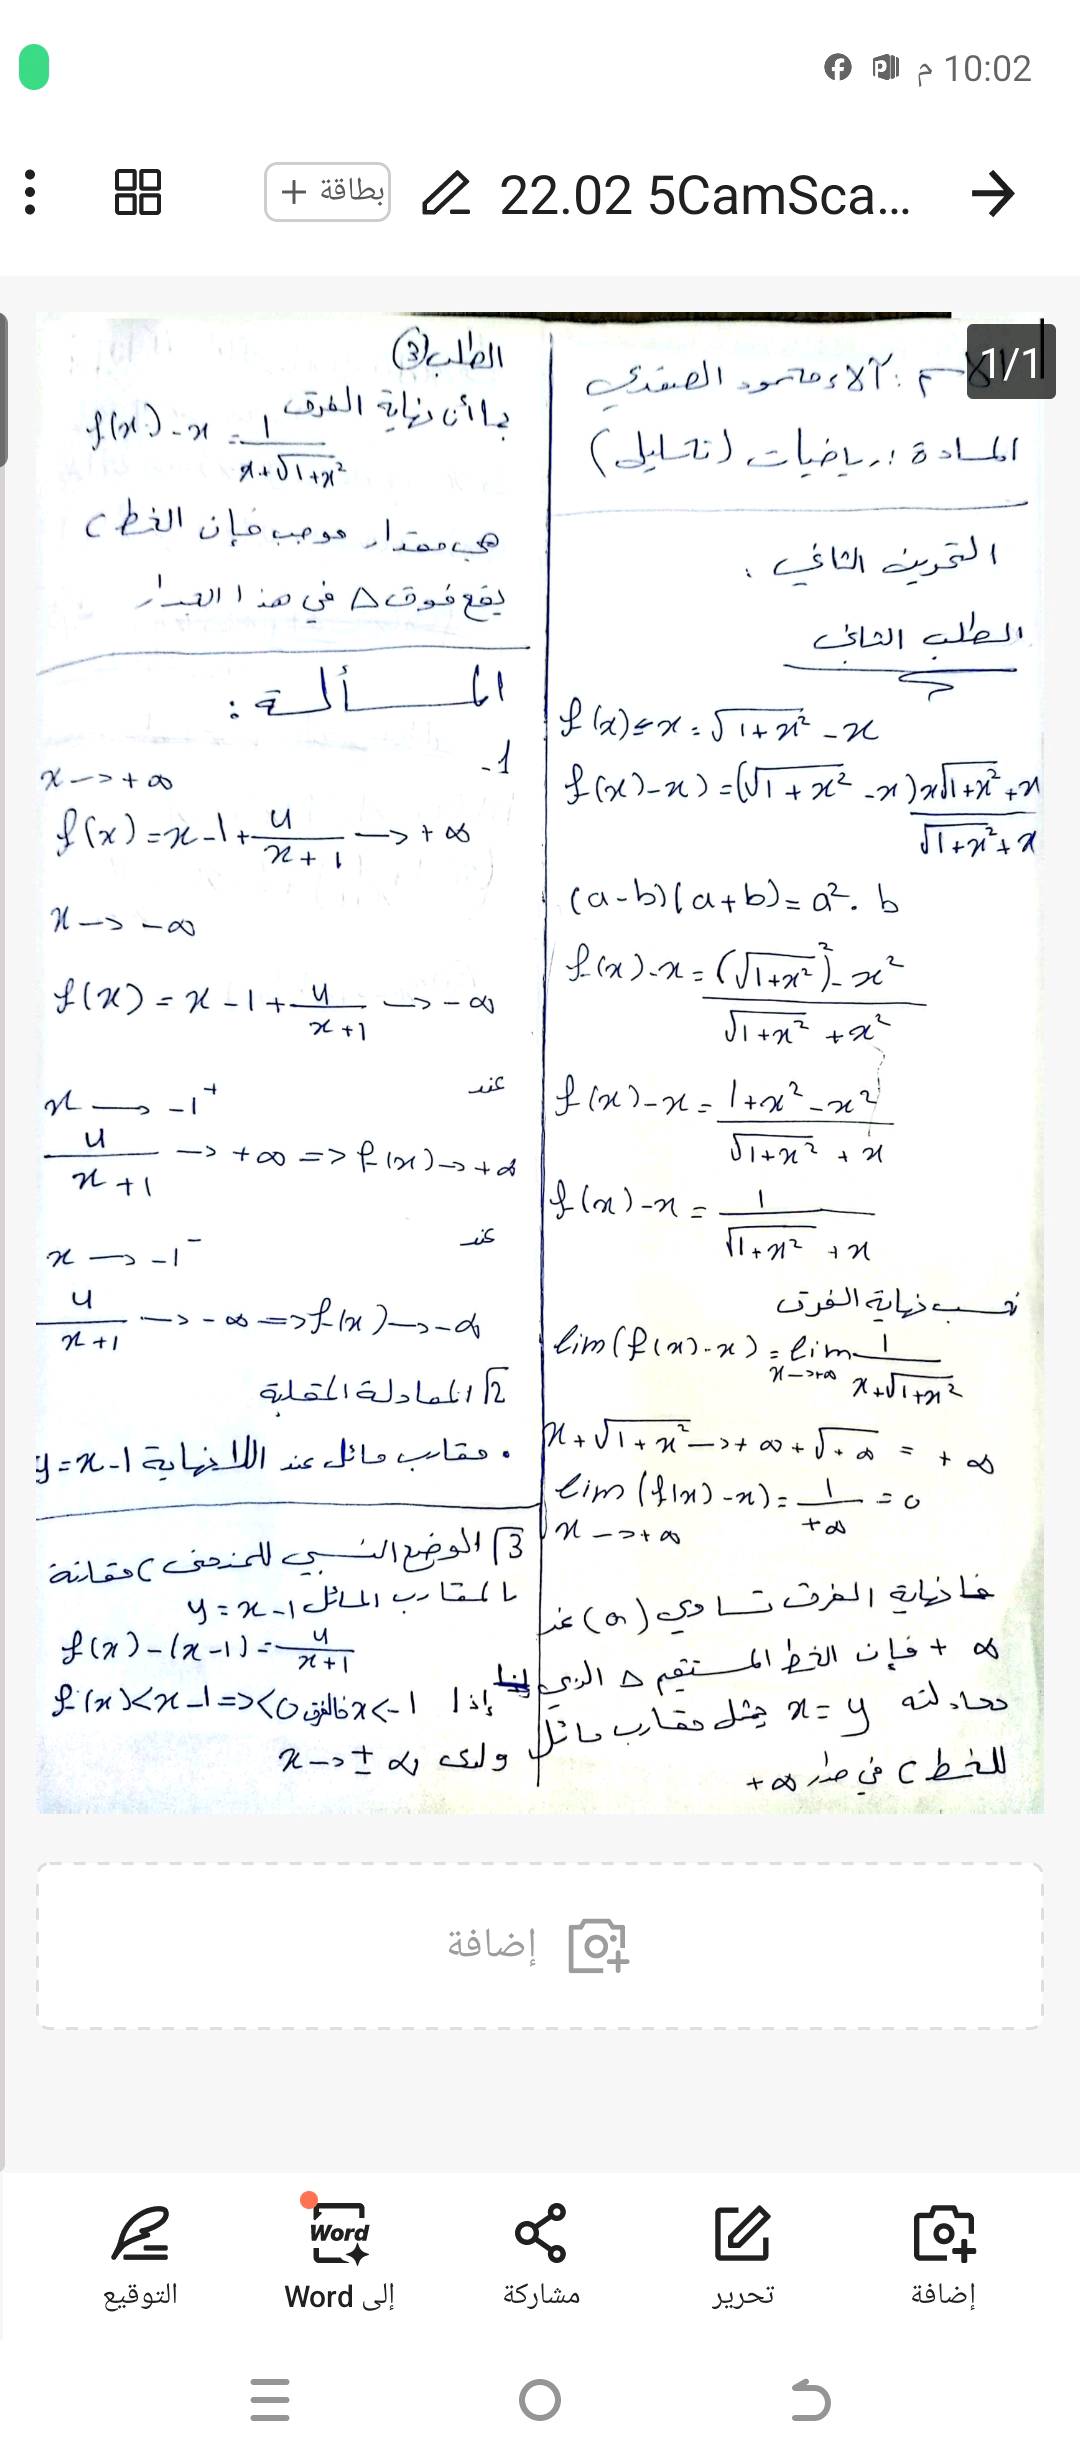 10:02 م
22.02 5CamSca...
بطاقة +
1/1
الاسم : آلاء محمود الصفدي
المادة : رياضيات (تحليل)
التمرين الثاني :
الطلب الثاني
f(x) - x = √1+x² - x
f(x) - x) = (√1+x² - x) x √1+x² + x / √1+x² + x
(a-b)(a+b) = a² - b
f(x) - x = (√1+x²)² - x² / √1+x² + x²
f(x) - x = 1+x² - x² / √1+x² + x
f(x) - x = 1 / √1+x² + x
نحسب نهاية الفرق
lim (f(x) - x) = lim x→+∞ 1 / x+√1+x²
x + √1+x² → +∞ + √+∞ = +∞
lim x→+∞ (f(x) - x) = 1 / +∞ = 0
نهاية الفرق تساوي (0) عند
+∞ فإن الخط المستقيم Δ الذي
معادلته y = x يمثل مقارب مائل
للخط C في جوار +∞
الطلب 3
بما أن نهاية الفرق
f(x) - x = 1 / x+√1+x²
هي مقدار موجب فإن الخط C
يقع فوق Δ في هذا الجوار
المسألة :
1-
x → +∞
f(x) = x - 1 + 4 / x+1 → +∞
x → -∞
f(x) = x - 1 + 4 / x+1 → -∞
عند x → -1⁺
4 / x+1 → +∞ => f(x) → +∞
عند x → -1⁻
4 / x+1 → -∞ => f(x) → -∞
2 المعادلة
مقارب مائل عند اللانهاية y = x - 1
3 الوضع النسبي للمنحني C مقارنة
بالمقارب المائل y = x - 1
f(x) - (x - 1) = 4 / x+1
إذا x < -1 فالفرق < 0 => f(x) < x - 1
x → ± ∞
إضافة
إضافة
تحرير
مشاركة
Word
إلى Word
التوقيع